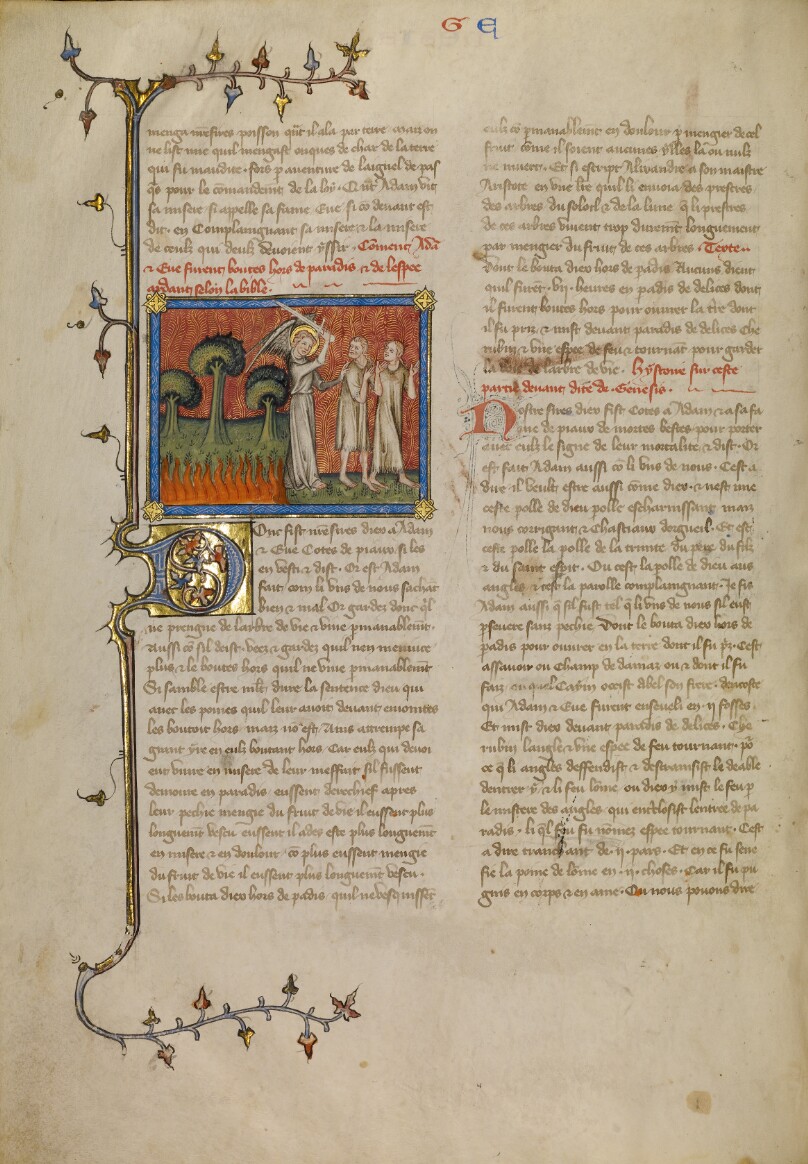 G E
menga nostre sires poisson qnt il ala par terre mais on
ne list mie quil mengast onques de char de la terre
qui fu maudite. fors p auenture de laignel de pas
qs pour le comandemt de la loy. Et qnt Adam vit
sa misere si appelle sa fame Eue si co deuant est
dit. en Complaingnant sa misere & la misere
de ceulz qui deulz deuoient yssir. Coment Ada
& Eue furent boutes hors de paradis & de lespee
ardant selon la bible.
Donc fist nre sires diex a Adam
& Eue Cotes de piaux si les
en vesti & dist. Or est Adam
fait com li vns de nous sachat
bien & mal Or gardez donc ql
ne prengne de larbre de vie & viue pmanablemt.
Aussi co sil deist. veez & gardez quil nen menjuce
plus, & le boutes hors quil ne viue pmanablemt
Si samble estre mlt dure la sentence dieu qui
auec les poines quil leur auoit deuant eniointes
les boutoit hors. mais no est. Ains attrempe sa
grant yre en eulz boutant hors. Car eulz qui deuoi
ent viure en misere de leur meffait sil fussent
demoure en paradis eussent derechief apres
leur pechie mengie du fruit de vie il eussent plus
longuemt vescu eussent il ades este plus longuemt
en misere & en doulour. co plus eussent mengie
du fruit de vie il eussent plus longuemt vescu.
Si les bouta diex hors de padis quil ne vesquissent
eulz co pmanablemt en doulour p mengier de cel
fruit come il soient aucunes ylles la ou nulz
ne muert. Et si escript Alixandre a son maistre
Aristote en vne lre quil li enuoia des prestres
des arbres du soloil & de la lune q li prestres
de ces arbres viuent trop duremt longuement
par mengier du fruit de ces arbres. Texte..
Dont le bouta diex hors de padis Aucuns dient
quil furet .vij. heures en padis de delices dont
il furent boutes hors pour ouurer la tre dont
il fu priz & mist deuant paradis de delices Che
rubin & vne espee de feu & tournat pour garder
la voie de larbre de vie. hystoire sur ceste
partie deuant dite de Genesis.
Nostre sires diex fist Cotes a Adam & a sa fa
me de piaux de mortes bestes pour porter
auec eulz le signe de leur mortalite & dist. Or
est fait Adam aussi co li vns de nous. Cest a
dire il veult estre aussi come diex. & nest mie
ceste polle de dieu polle escharnissant mais
nous corrigant & Chastiant dorgueil. Et est
ceste polle la polle de la trinite du pere du filz
& du saint espit. Ou cest la polle de dieu aus
angles & cest la parolle complaingnant. Je fis
Adam aussi q sil fust tel q li vns de nous sil eust
pseuere sanz pechie. Dont le bouta diex hors de
padis pour ouurer en la terre dont il fu pz. Cest
assauoir ou Champ de damas ou & dont il fu
faiz ou quel Cayin occist abel son frere. dencoste
qui Adam & Eue furent enseueli en .ij. fosses.
Et mist diex deuant paradis de delices. Che
rubin langle & vne espee de feu tournant. po
ce q li angles deffendist & destraisist le deable
dentrer y. & li feu lome. ou diex y mist le feu p
le mistere des angles qui enclosist lentree de pa
radis. li ql feu fu nomez espee tournant. Cest
a dire tranchant de .ij. pars. Et en ce fu sene
fie la poine de lome en .ij. choses. Car il fu pu
gnis en corps & en ame. Ou nous pouons dire